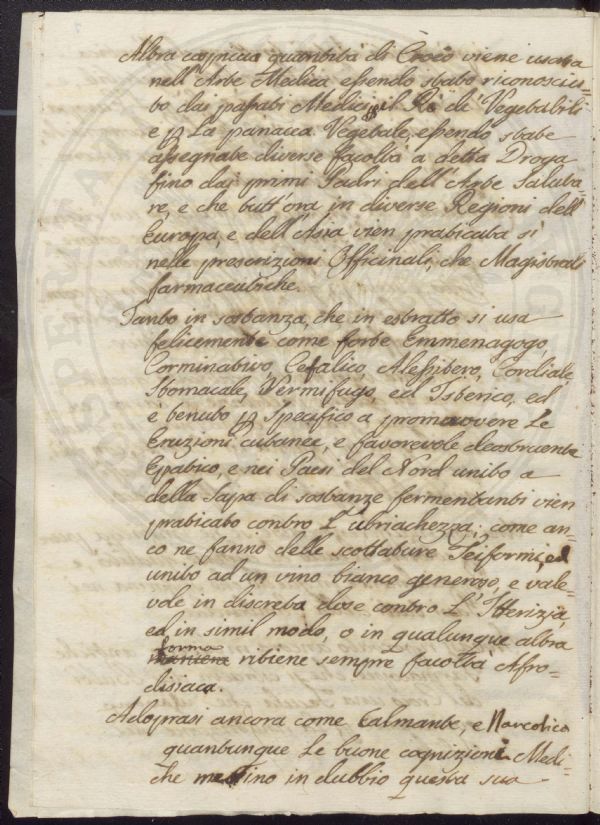 Altra cospicua quantità di Croco viene usata
nell'Arte Medica essendo stato riconosciu-
to dai passati Medici il Rè de' Vegetabili
e p La panacea Vegetale, essendo state
assegnate diverse facoltà a detta Droga
fino dai primi Padri dell'Arte Saluta-
re, e che tutt'ora in diverse Regioni dell'
Europa, e dell'Asia vien praticata sì
nelle prescrizioni Officinali, che Magistrali
farmaceutiche.
Tanto in sostanza, che in estratto si usa
felicemente come forte Emmenagogo,
Corminativo, Cefalico, Alessitero, Cordiale,
Stomacale, Vermifugo, ed Isterico, ed
è tenuto p Specifico a promuovere Le
Eruzioni cutanee, e favorevole deostruente
Epatico, e nei Paesi del Nord unito a
della Sapa di sostanze fermentanti vien
praticato contro L'ubriachezza; come an-
co ne fanno delle scottature Teiformi, ed
unito ad un vino bianco generoso, e vale-
vole in discreta dose contro L'Itterizia,
ed in simil modo, o in qualunque altra
forma
maniera ritiene sempre facoltà Afro-
disiaca.
Adoprasi ancora come Calmante, e Narcotico
quantunque Le buone cognizioni Medi-
che mettino in dubbio questa sua